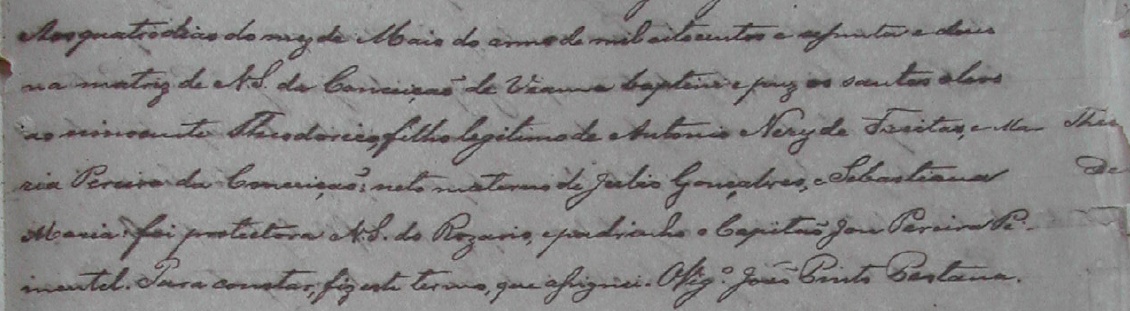 Aos quatro dias do mez de Maio do anno de mil oitocentos e sessenta e dous
na matriz de N. S. da Conceição de Vianna baptizei e puz os santos oleos
ao innocente Theodorico, filho legitimo de Antonio Nery de Freitas, e Ma-
ria Pereira da Conceição: neto materno de Julio Gonçalves, e Sebastiana
Maria: foi protectora N. S. do Rozario, e padrinho o Capitão José Pereira Pi-
mentel. Para constar, fiz este termo, que assignei. O Vigº. João Pinto Pestana.
Theo
De